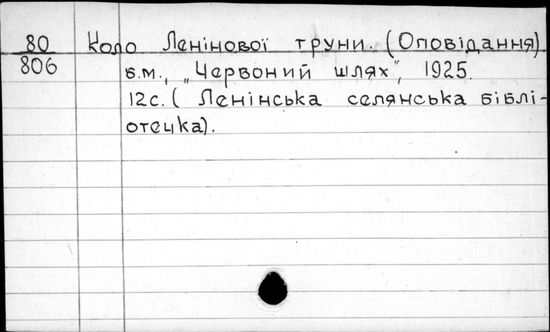 80 Коло Ленінової труни. (Оповідання)
806 б.м., „Червоний шлях“, 1925.
12с. (Ленінська селянська біблі-
отецка).